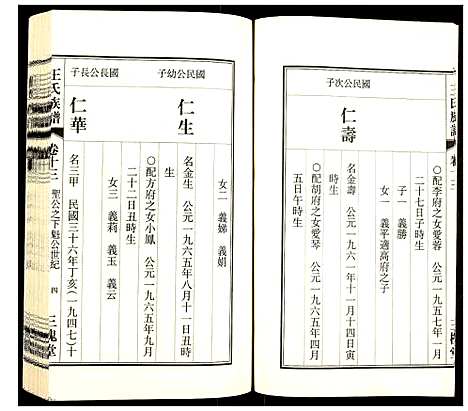 王氏族譜
卷十三
〇配李府之女愛蓉 公元一九五七年一月
二十七日子時生
子一 義勝
女一 義平適高府之子
國民公次子
仁壽
名金壽 公元一九六一年十一月十四日寅
時生
〇配胡府之女愛琴 公元一九六五年四月
五日午時生
女二 義娣 義娟
國民公幼子
仁生
名金生 公元一九六五年八月十一日丑時
生
〇配方府之女小鳳 公元一九六五年九月
二十二日丑時生
女三 義莉 義玉 義云
國長公長子
仁華
名三甲 民國三十六年丁亥(一九四七)十
王氏族譜
卷十三
聖公之下魁公世紀
四
三槐堂